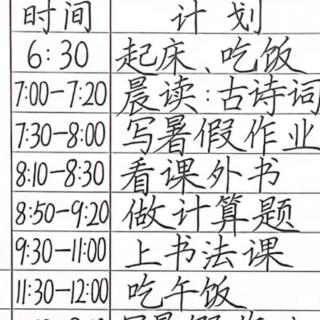 时间 计划
6:30 起床、吃饭
7:00-7:20 晨读:古诗词
7:30-8:00 写暑假作业
8:10-8:30 看课外书
8:50-9:20 做计算题
9:30-11:00 上书法课
11:30-12:00 吃午饭